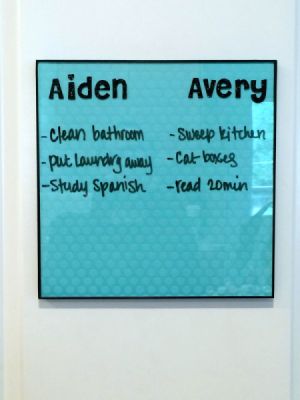 Aiden Avery
- Clean bathroom
- put laundry away
- Study Spanish
- Sweep kitchen
- Cat boxes
- read 20min